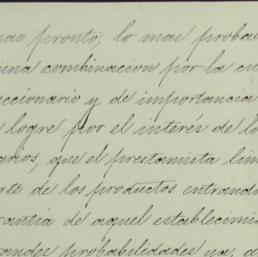 mas pronto, lo mas proba
una combinacion por la cu
ccionario y de importancia
logre por el interés de l
arios, que el prestamista lim
rte de los productos entrand
rantía de aquel establecimi
randes probabilidades ya, a